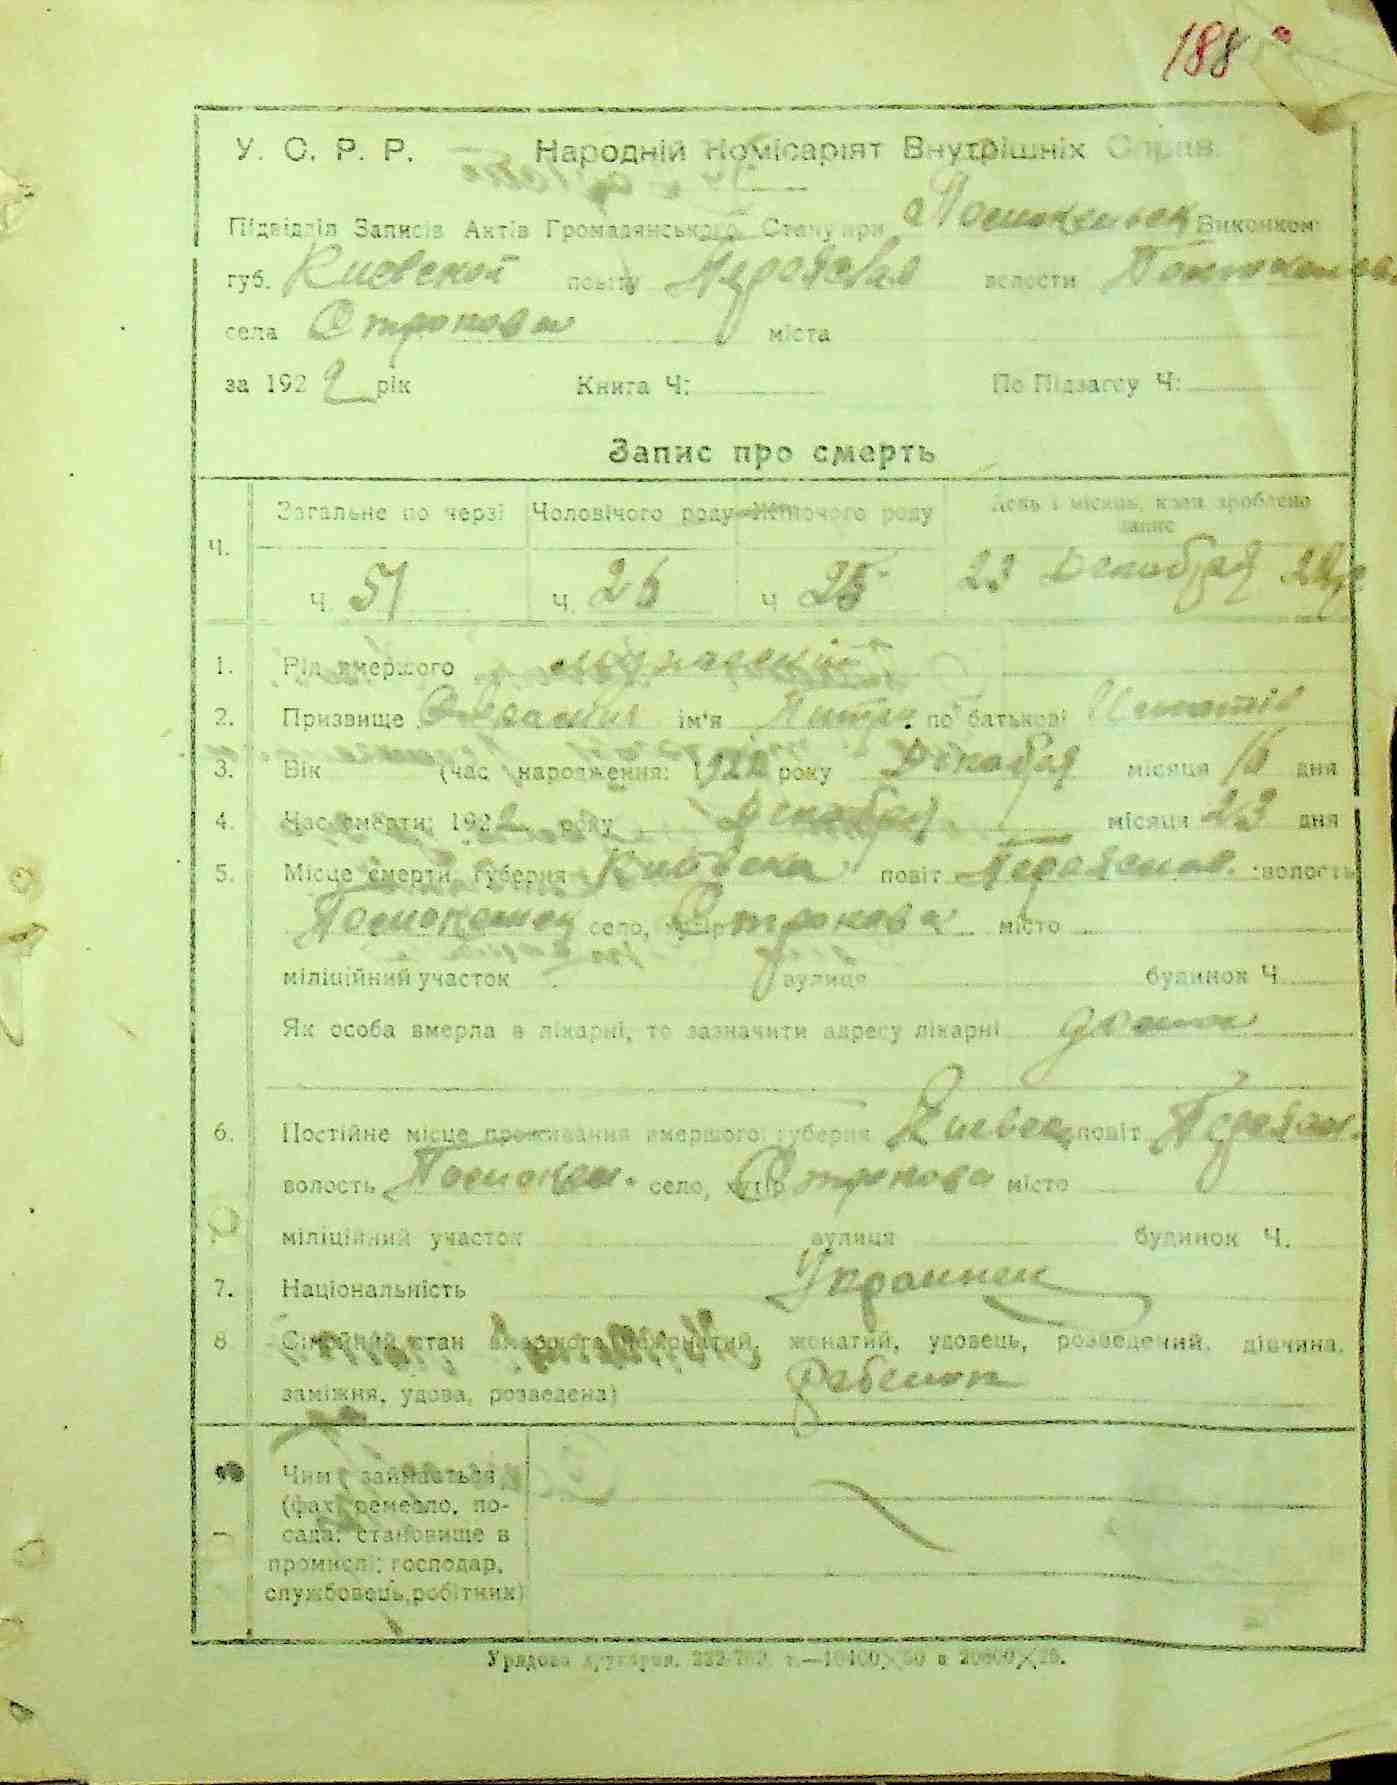 188
У. С. Р. Р. Народній Комісаріят Внутрішніх Справ.
Підвідділ Записів Актів Громадянського Стану при Виконком
губ. Киевской повіту волости
села Строкова міста
за 1922 рік Книга Ч: По Підзагсу Ч:
Запис про смерть
Ч. Загальне по черзі Чоловічого роду Жіночого роду День і місяць, коли зроблено
запис
Ч. 51 Ч. 26 Ч. 25 23 Декабря 22 г
1. Рід вмершого мужеский
2. Призвище ім'я по батькові
3. Вік (час народження: 1922 року Декабря місяця 16 дня
4. Час смерти: 1922 року Декабря місяця 23 дня
5. Місце смерти. Губерня повіт Переяслав. волость
село, хутір Строкова місто
міліційний участок вулиця будинок Ч.
Як особа вмерла в лікарні, то зазначити адресу лікарні дома
6. Постійне місце проживання вмершого: губерня Киевск. повіт
волость село, хутір Строкова місто
міліційний участок вулиця будинок Ч.
7. Національність Украинец
8. Сімейний стан вмершого (неженатий, женатий, удовець, розведений, дівчина,
заміжня, удова, розведена) Ребенок
Чим займається
(фах, ремесло, по-
сада: становище в
промислі: господар,
службовець, робітник)